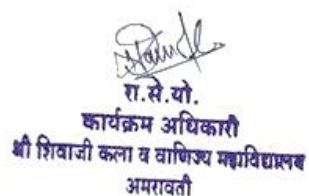 रा.से.यो.
कार्यक्रम अधिकारी
श्री शिवाजी कला व वाणिज्य महाविद्यालय
अमरावती